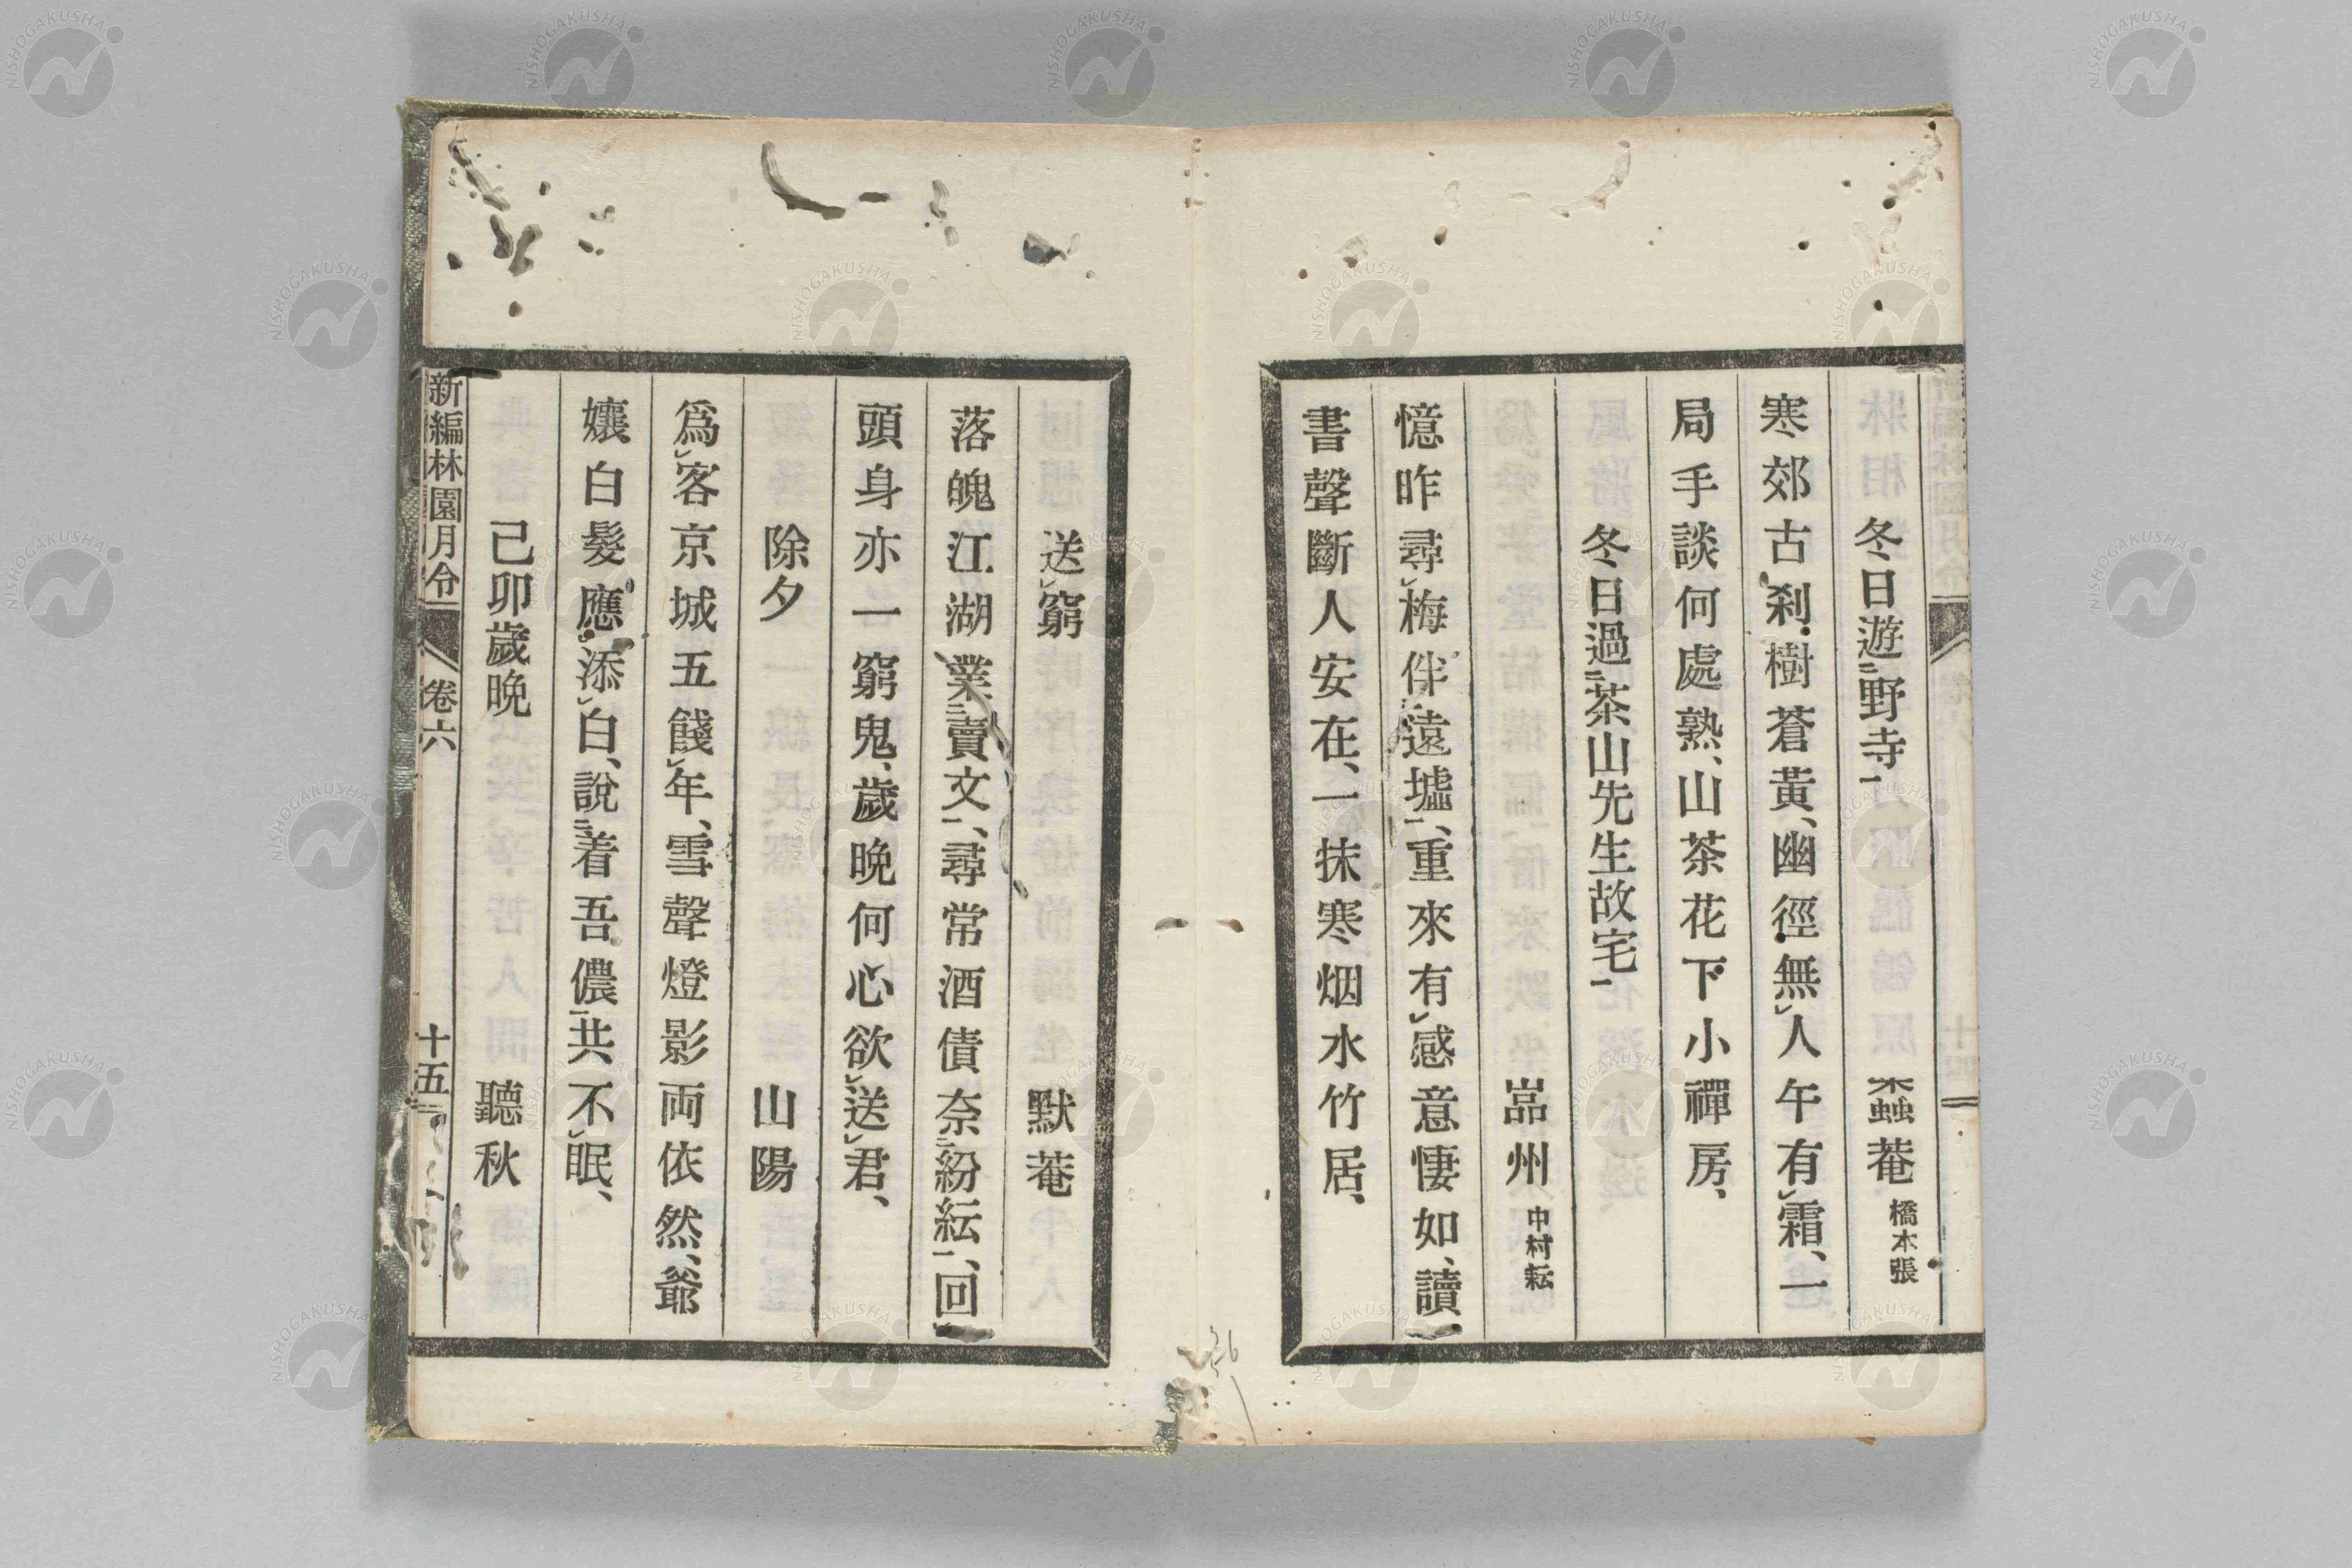 冬日遊野寺 蠧菴 橋本張
寒郊古刹樹蒼黃、幽徑無人午有霜、一
局手談何處熟、山茶花下小禪房、
冬日過茶山先生故宅
嵓州 中村耘
憶昨尋梅伴遠墟、重來有感意悽如、讀
書聲斷人安在、一抹寒烟水竹居、
送窮 默菴
落魄江湖業賣文、尋常酒債奈紛紜、回
頭身亦一窮鬼、歲晚何心欲送君、
除夕 山陽
爲客京城五餞年、雪聲燈影両依然、爺
孃白髮應添白、說着吾儂共不眠、
己卯歲晚 聽秋
新編林園月令 卷六 十五